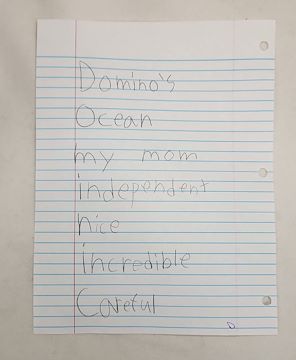 Domino's
Ocean
my mom
independent
nice
incredible
Careful